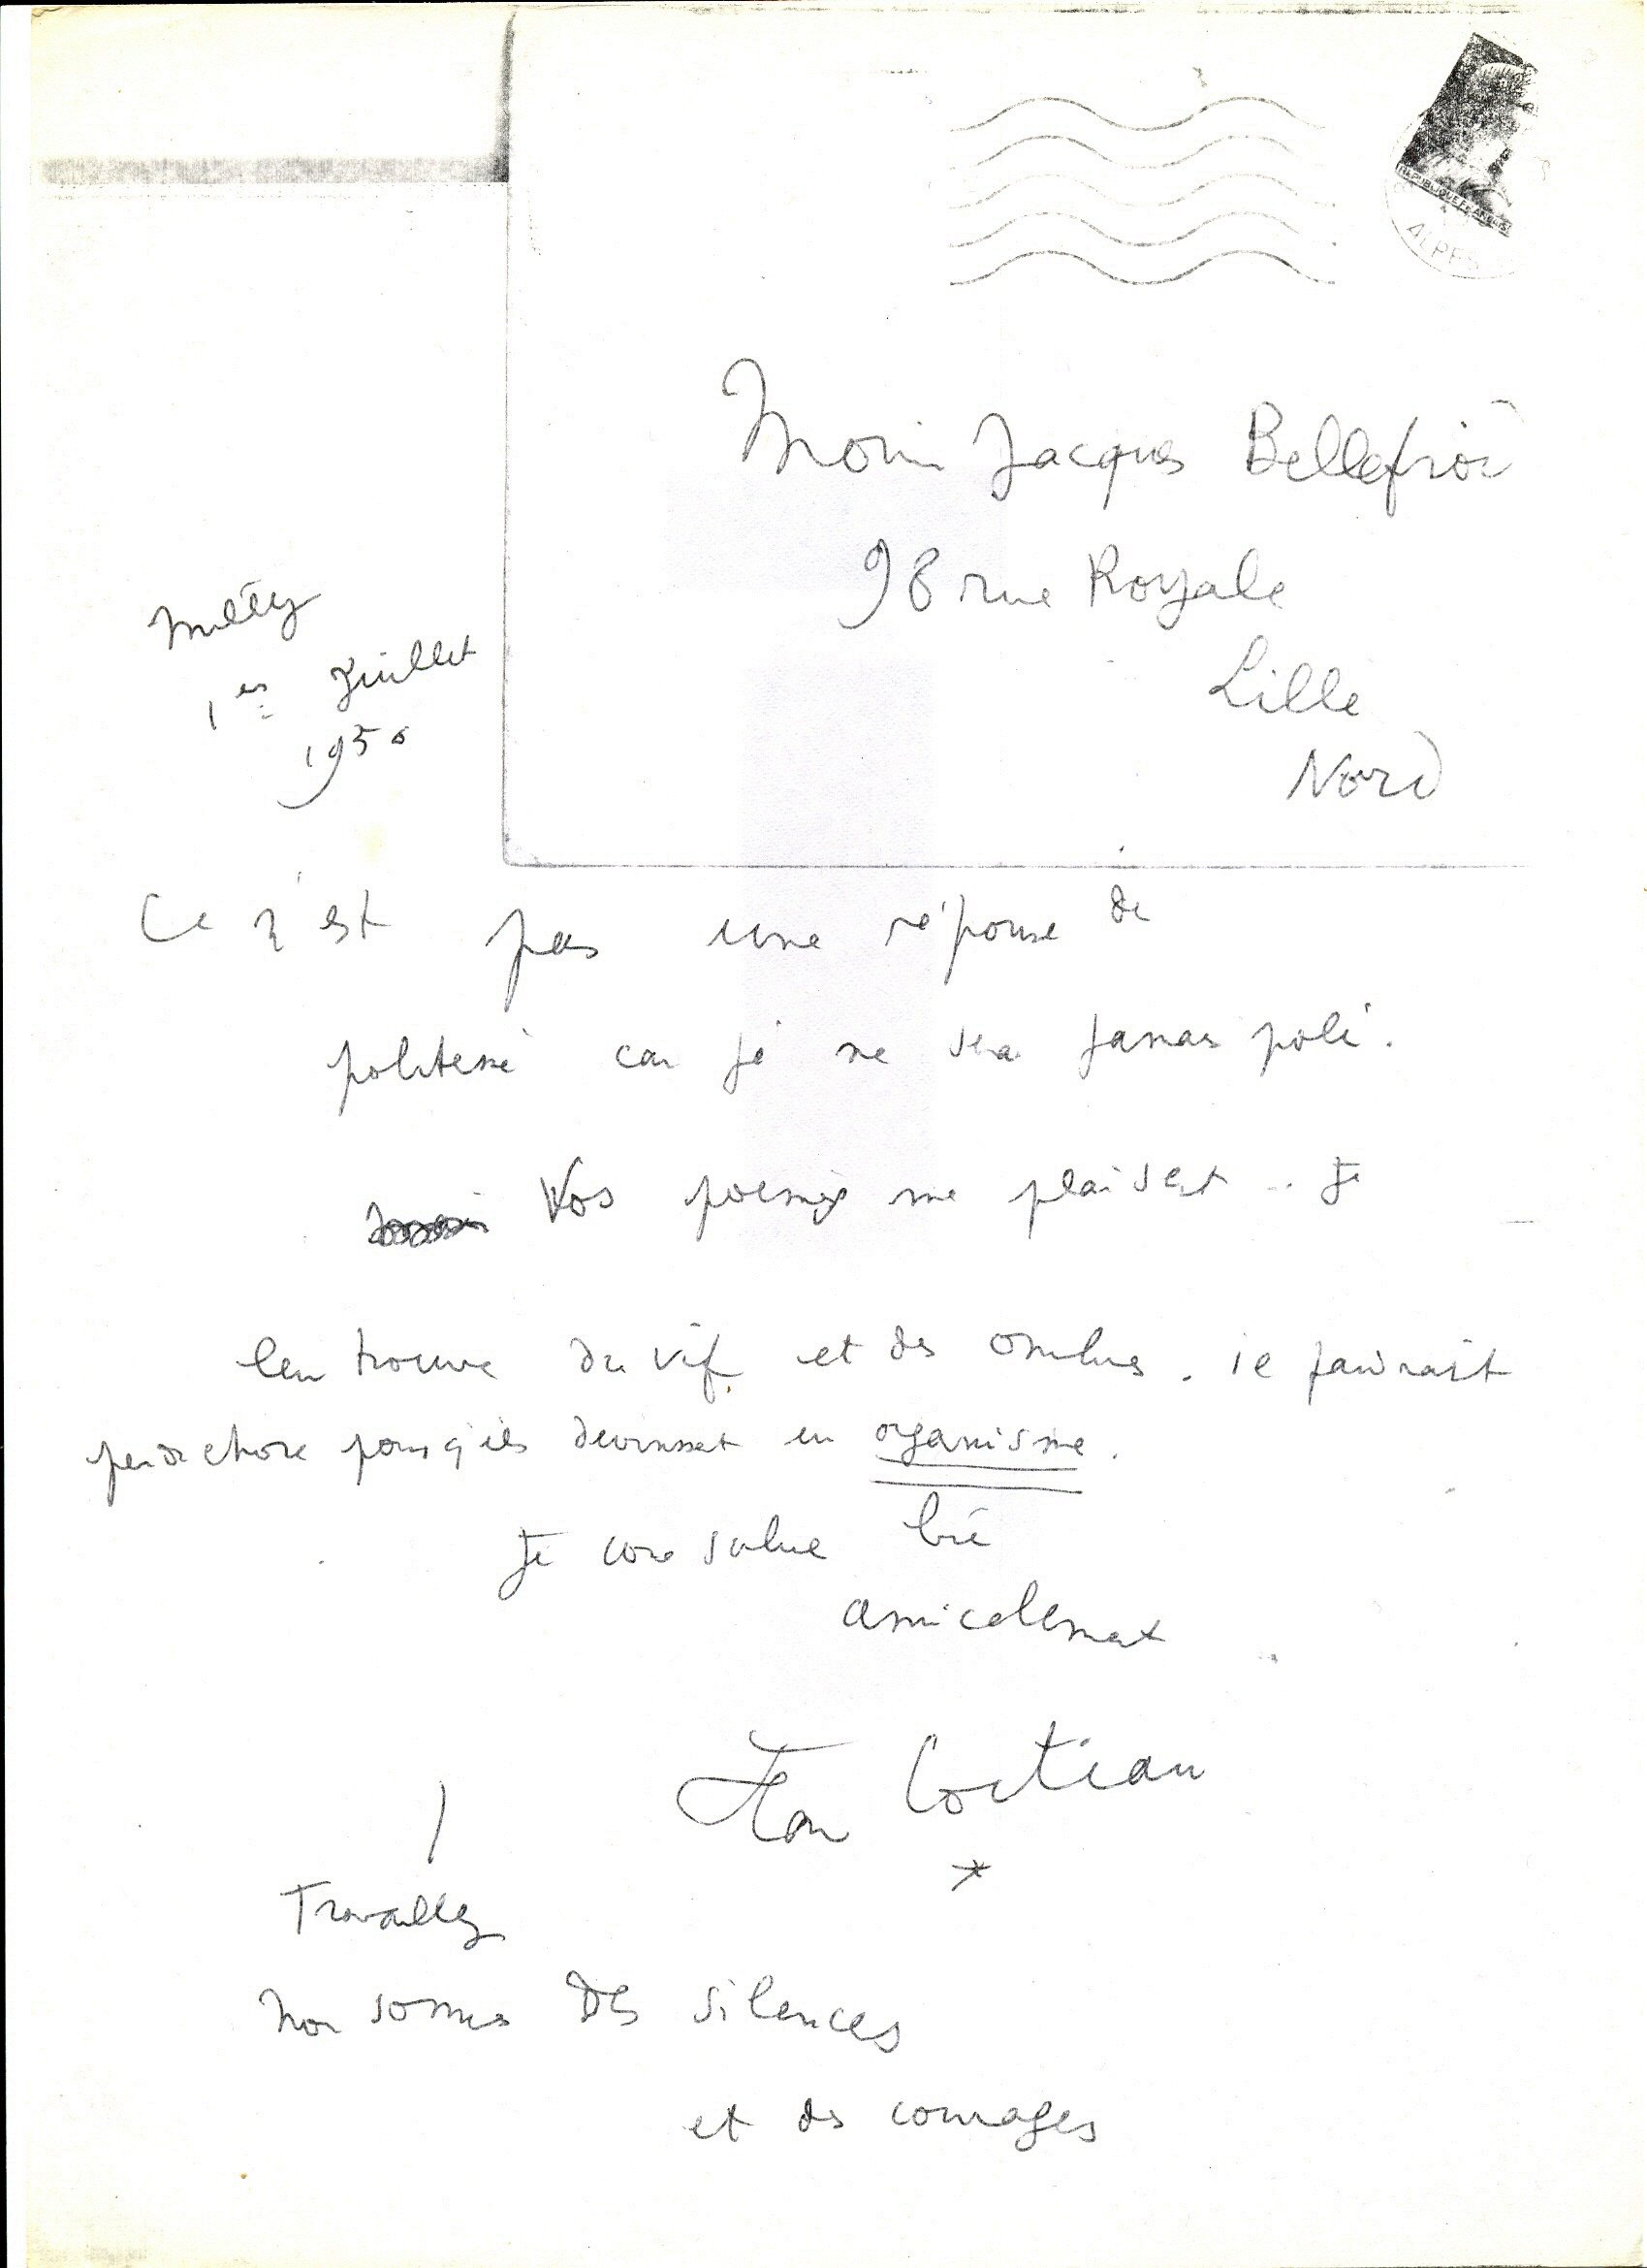 REPUBLIQUE FRANCAISE
ALPES
Jacques Bellefroid
98 rue Royale
Lille
Nord
Milly
1er Juillet
1950
Ce n'est pas une réponse de
politesse car je ne serai jamais poli.
Vos poemes me plaisent .. Je
leur trouve du vif et des ombres. il faudrait
peu de chose pour qu'ils devinssent un organisme.
Je vous salue bien
amicalement
Jean Cocteau
*
Travaillez
Nous sommes DES silences
et des courages